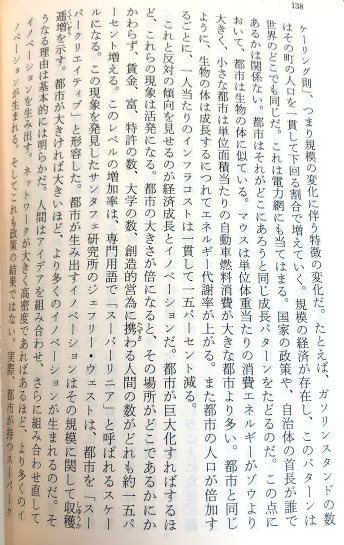 138
ケーリング則」、つまり規模の変化に伴う特徴の変化だ。たとえば、ガソリンスタンドの数
はその町の人口を一貫して下回る割合で増えていく。規模の経済が存在し、このパターンは
世界のどこでも同じだ。これは電力網にも当てはまる。国家の政策や、自治体の首長が誰で
あるかは関係ない。都市はそれがどこにあろうと同じ成長パターンをたどるのだ。この点に
おいて、都市は生物の体に似ている。マウスは単位体重当たりの消費エネルギーがゾウより
大きく、小さな都市は単位面積当たりの自動車燃料消費が大きな都市より多い。都市と同じ
ように、生物の体は成長するにつれてエネルギー代謝率が上がる。また都市の人口が倍加す
るごとに、一人当たりのインフラコストは一貫して一五パーセント減る。
これと反対の傾向を見せるのが経済成長とイノベーションだ。都市が巨大化すればするほ
ど、これらの現象は活発になる。都市の大きさが倍になると、その場所がどこであるかにか
かわらず、賃金、富、特許の数、大学の数、創造的営為に携わる人間の数がどれも約一五パ
ーセント増える。このレベルの増加率は、専門用語で「スーパーリニア」と呼ばれるスケー
ルになる。この現象を発見したサンタフェ研究所のジェフリー・ウェストは、都市を「スー
パークリエイティブ」と形容した。都市が生み出すイノベーションはその規模に関して収穫
しゅうかく
逓増を示す。都市が大きければ大きいほど、より多くのイノベーションが生まれるのだ。そ
うなる理由は基本的には明らかだ。人間はアイデアを組み合わせ、さらに組み合わせ直して
イノベーションを生み出す。ネットワークが大きく高密度であればあるほど、より多くのイ
ノベーションが生まれる。そしてこれも政策の結果ではない。実際、都市が持つスーパーク